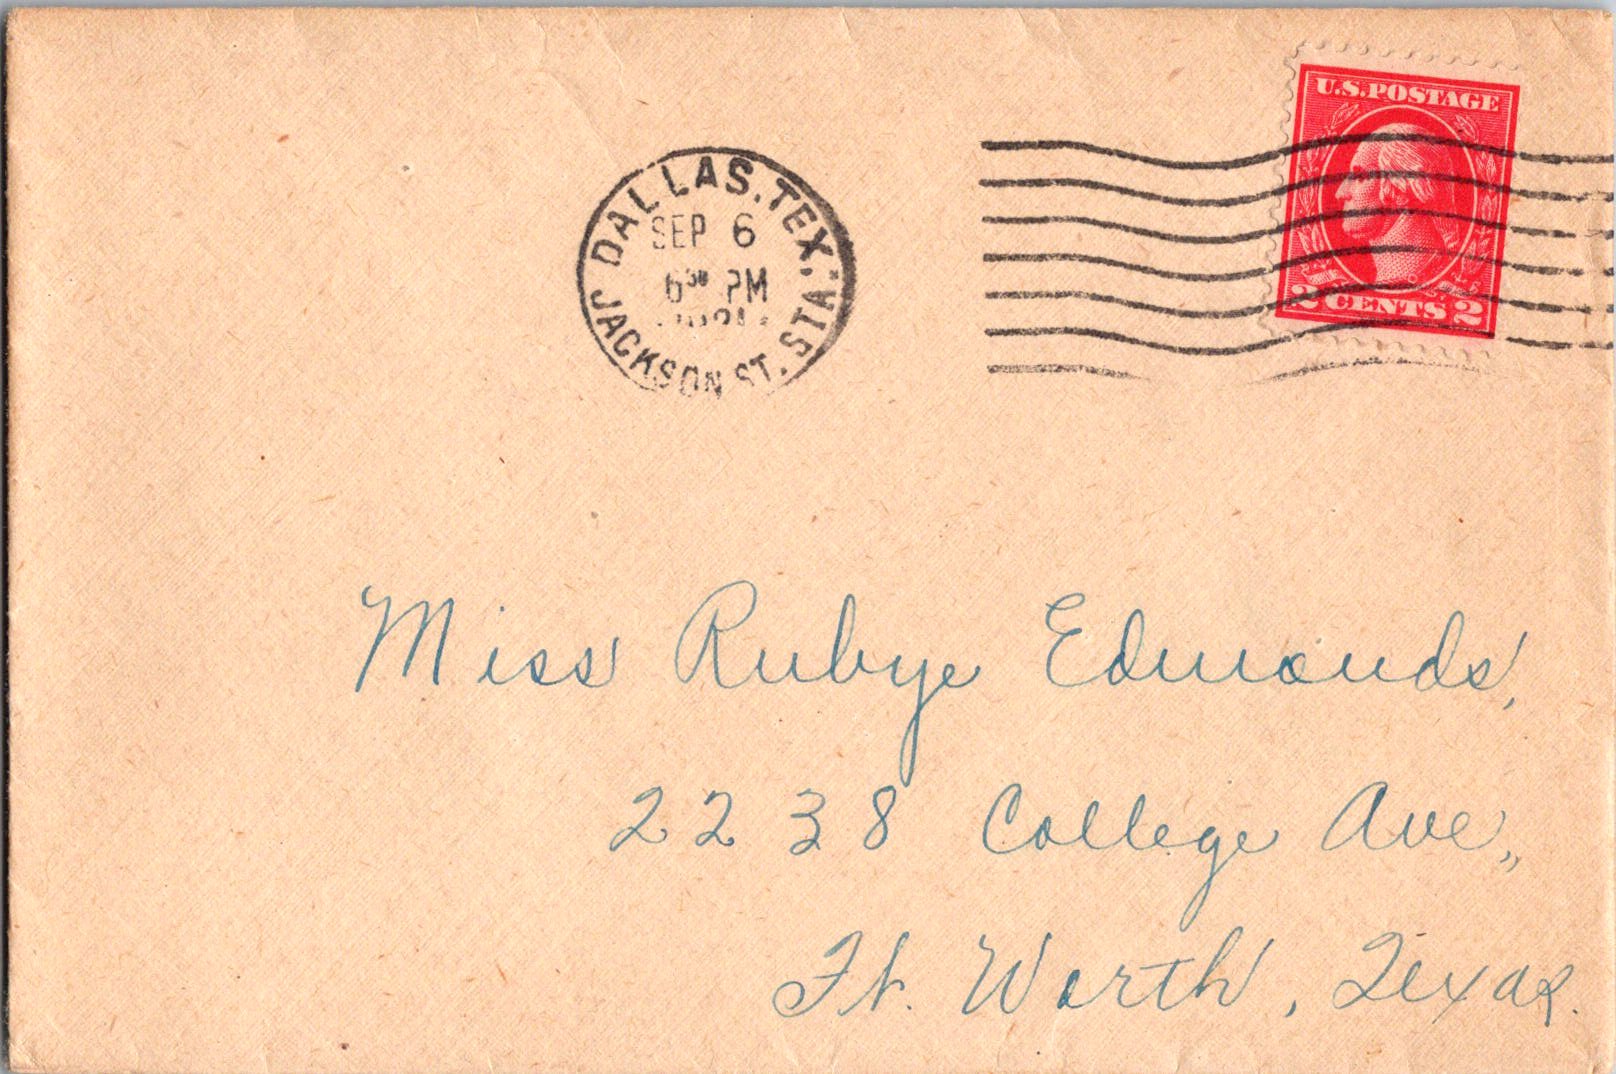 U.S. POSTAGE
2 CENTS 2
DALLAS, TEX.
SEP 6
6 30 PM
JACKSON ST. STA.
Miss Rubye Edmonds,
2238 College Ave.,
Ft. Worth, Texas.